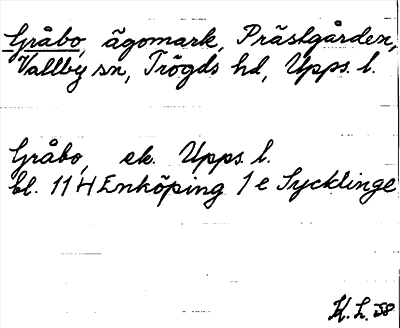 Gråbo, ägomark, Prästgården,
Vallby sn, Trögds hd, Upps. l.
Gråbo, ek. Upps. l.
bl. 11 H Enköping 1 e Sycklinge
K. L. 58